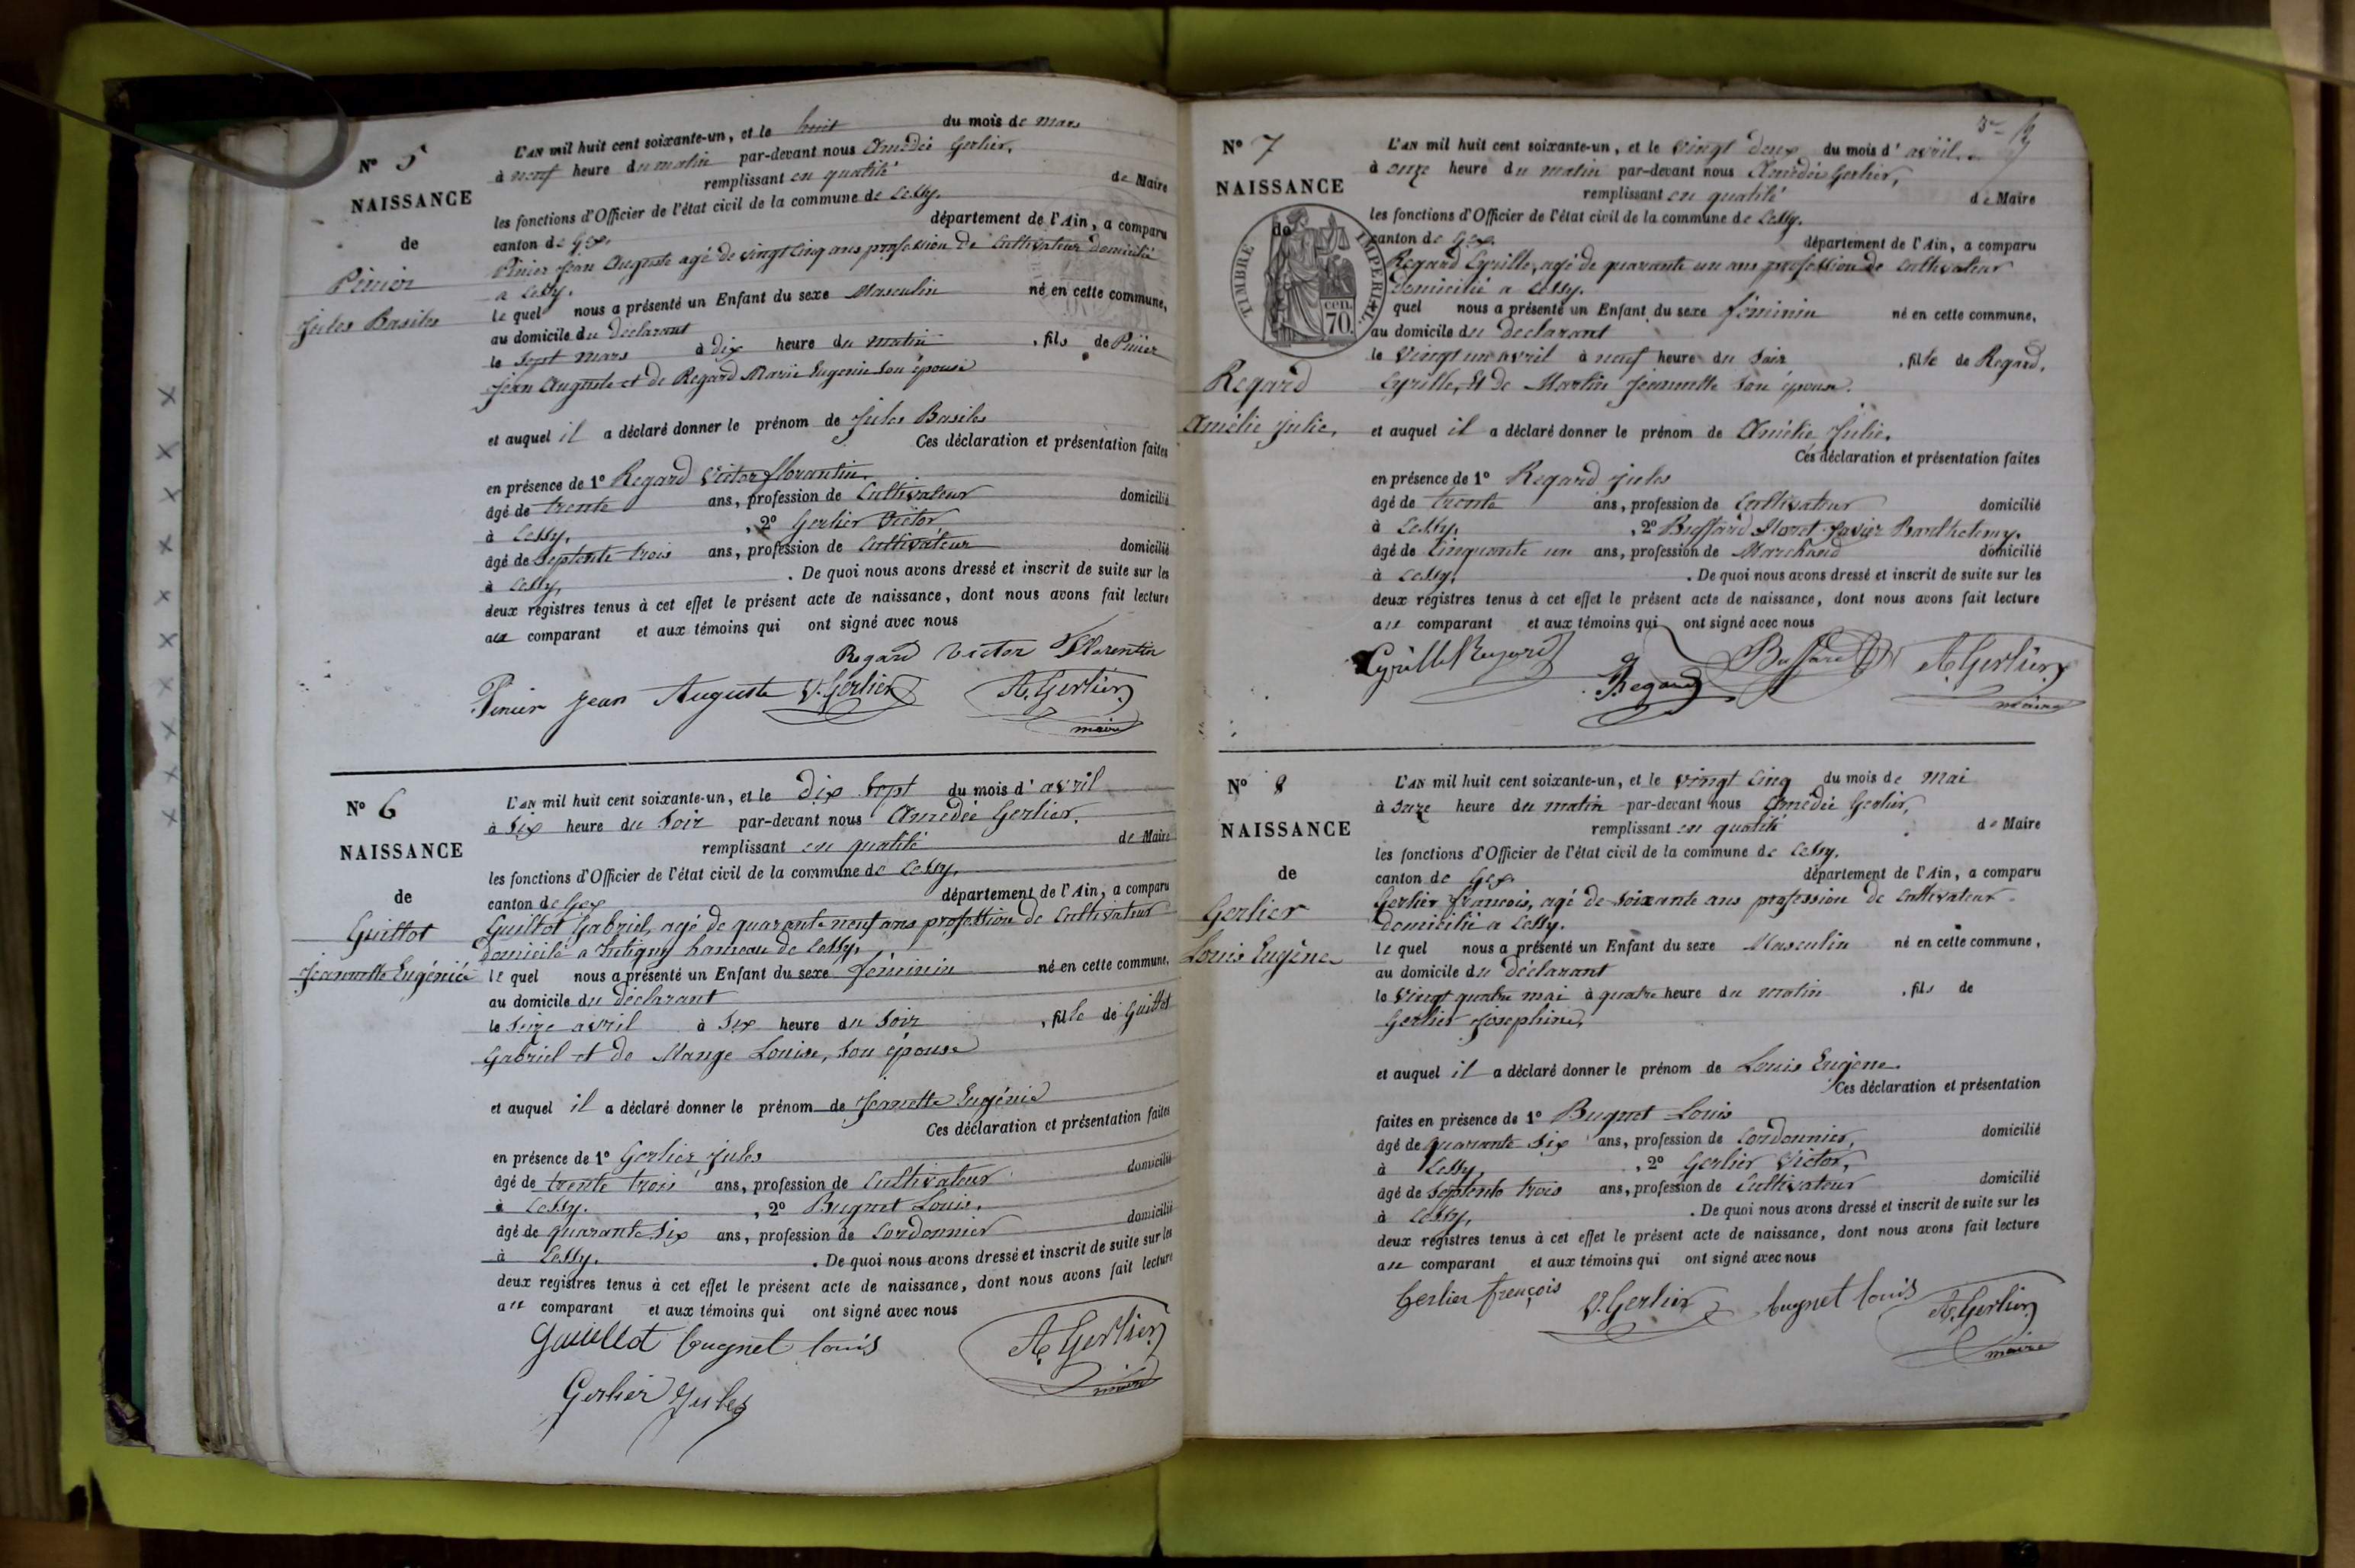 N° 5
NAISSANCE
de
Pinier
Jules Basiles
L'AN mil huit cent soixante-un, et le huit du mois de mars
à neuf heure du matin par-devant nous Amédée Gerlier,
remplissant en qualité de Maire
les fonctions d'Officier de l'état civil de la commune de Cessy,
canton de Gex, département de l'Ain, a comparu
Pinier Jean Auguste agé de vingt cinq ans profession de Cultivateur domicilié
a Cessy.
le quel nous a présenté un Enfant du sexe Masculin né en cette commune,
au domicile du déclarant
le sept mars à dix heure du matin , fils de Pinier
Jean Auguste et de Regard Marie Eugenie son épouse
et auquel il a déclaré donner le prénom de Jules Basiles
Ces déclaration et présentation faites
en présence de 1° Regard Victor florantin.
âgé de trente ans, profession de Cultivateur domicilié
à Cessy, , 2° Gerlier Victor,
âgé de Septente trois ans, profession de Cultivateur domicilié
à Cessy, . De quoi nous avons dressé et inscrit de suite sur les
deux registres tenus à cet effet le présent acte de naissance, dont nous avons fait lecture
au comparant et aux témoins qui ont signé avec nous
Regard Victor Florentin
Pinier Jean Auguste V. Gerlier A. Gerlier
maire
N° 6
NAISSANCE
de
Guillot
Jeannette Eugénie
L'AN mil huit cent soixante-un, et le dix sept du mois d'avril
à Six heure du Soir par-devant nous Amédée Gerlier,
remplissant en qualité de Maire
les fonctions d'Officier de l'état civil de la commune de Cessy,
canton de Gex département de l'Ain, a comparu
Guillot Gabriel, agé de quarante neuf ans profession de Cultivateur
domicilé a hameau de Cessy.
le quel nous a présenté un Enfant du sexe féminin né en cette commune,
au domicile du déclarant
le Seize avril à Six heure du Soir , fille de Guillot
Gabriel et de Mange Louise, son épouse
et auquel il a déclaré donner le prénom de Jeanette Eugénie
Ces déclaration et présentation faites
en présence de 1° Gerlier Jules
âgé de trente trois ans, profession de Cultivateur domicilié
à Cessy. , 2° Bugnet Louis,
âgé de quarante Six ans, profession de Cordonnier domicilié
à Cessy. . De quoi nous avons dressé et inscrit de suite sur les
deux registres tenus à cet effet le présent acte de naissance, dont nous avons fait lecture
au comparant et aux témoins qui ont signé avec nous
Guillot bugnet louis A. Gerlier
maire
Gerlier Jules
N° 7
NAISSANCE
de
TIMBRE IMPÉRIAL
cen.
70.
Regard
Amélie Julie,
L'AN mil huit cent soixante-un, et le vingt deux du mois d'avril
à onze heure du matin par-devant nous Amédée Gerlier,
remplissant en qualité de Maire
les fonctions d'Officier de l'état civil de la commune de Cessy.
canton de Gex. département de l'Ain, a comparu
Regard Cyrille, agé de quarante un ans profession de Cultivateur
domicilié a Cessy.
quel nous a présenté un Enfant du sexe féminin né en cette commune,
au domicile du déclarant
le Vingt un avril à neuf heure du Soir , fille de Regard,
Cyrille, Et de Martin Jeannette son épouse.
et auquel il a déclaré donner le prénom de Amélie Julie,
Ces déclaration et présentation faites
en présence de 1° Regard Jules
âgé de trente ans, profession de Cultivateur domicilié
à Cessy, , 2°
âgé de Cinquante un ans, profession de Marchand domicilié
à Cessy, . De quoi nous avons dressé et inscrit de suite sur les
deux registres tenus à cet effet le présent acte de naissance, dont nous avons fait lecture
au comparant et aux témoins qui ont signé avec nous
Cyrille Regard J Regard A. Gerlier
maire
N° 8
NAISSANCE
de
Gerlier
Louis Eugène
L'AN mil huit cent soixante-un, et le vingt cinq du mois de Mai
à onze heure du matin par-devant nous Amédée Gerlier,
remplissant en qualité de Maire
les fonctions d'Officier de l'état civil de la commune de Cessy.
canton de Gex. département de l'Ain, a comparu
Gerlier francois, agé de soixante ans profession de Cultivateur
domicilié a Cessy.
le quel nous a présenté un Enfant du sexe Masculin né en cette commune,
au domicile du déclarant
le Vingt quatre mai à quatre heure du matin , fils de
Gerlier Josephine,
et auquel il a déclaré donner le prénom de Louis Eugène.
Ces déclaration et présentation
faites en présence de 1° Bugnet Louis
âgé de quarante Six ans, profession de Cordonnier, domicilié
à Cessy, , 2° Gerlier Victor,
âgé de Septente trois ans, profession de Cultivateur domicilié
à Cessy, . De quoi nous avons dressé et inscrit de suite sur les
deux registres tenus à cet effet le présent acte de naissance, dont nous avons fait lecture
au comparant et aux témoins qui ont signé avec nous
Gerlier françois V. Gerlier bugnet louis A. Gerlier
maire